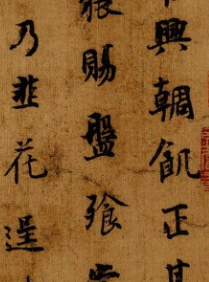 興輖飢正甚
猥賜盤飧
乃韭花逞